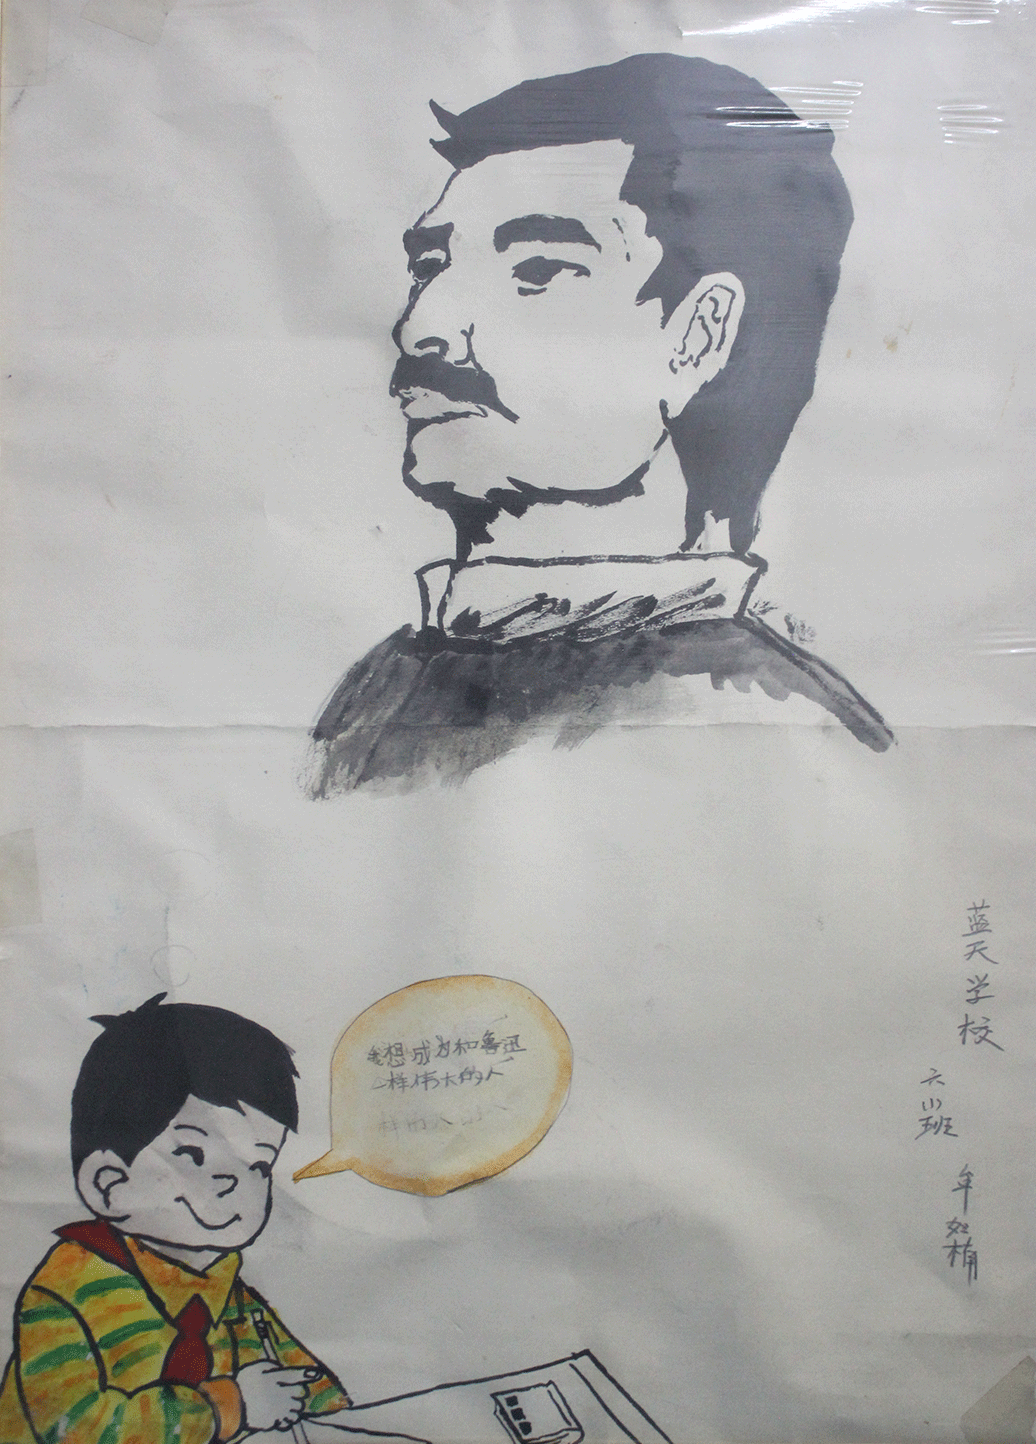 我想成为和鲁迅
一样伟大的人
蓝天学校
六(1)班